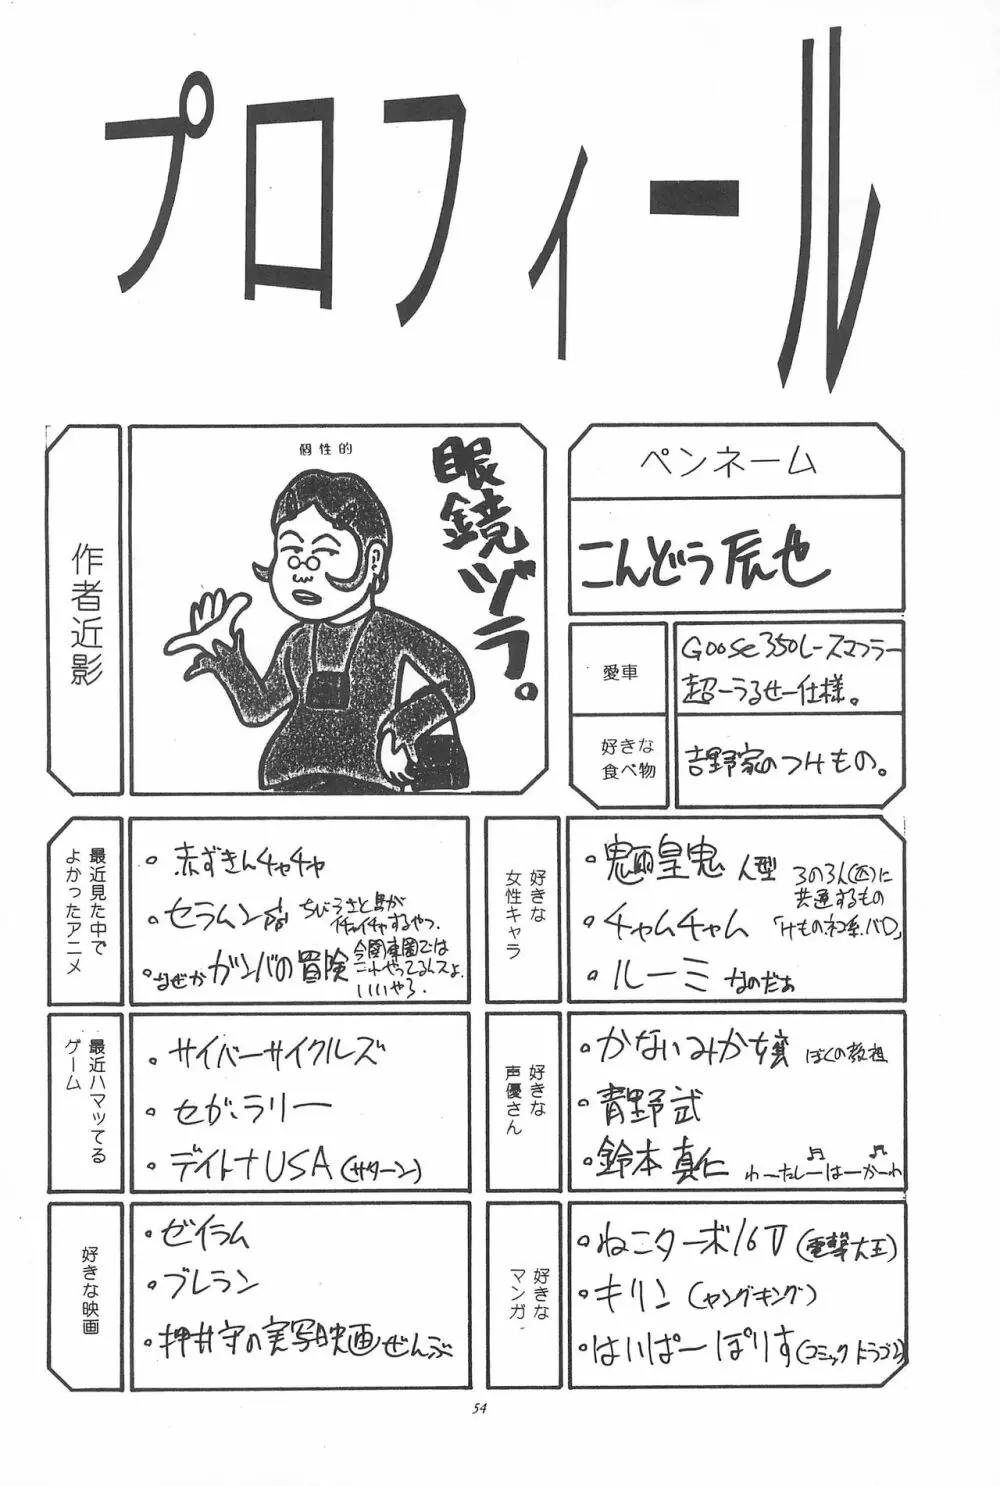 プロフィール
作者近影
個性的
眼鏡ヅラ。
ペンネーム
こんどう辰也
愛車
Goose350レースマフラー
超ーうるせー仕様。
好きな
食べ物
吉野家のつけもの。
最近見た中で
よかったアニメ
・赤ずきんチャチャ
・セラムン
ちびうさと馬が
イチャイチャするやつ。
・なぜかガンバの冒険
今関東圏では
これやってるんスよ。
いいやろ。
好きな
女性キャラ
・魍皇鬼 人型
3の3人(匹)に
共通するもの
・チャムチャム
「けものネコ系、バロ」
・ルーミ なのだぁ
最近ハマッてる
ゲーム
・サイバーサイクルズ
・セガ・ラリー
・デイトナUSA(サターン)
好きな
声優さん
・かないみか嬢 ぼくの教祖
・青野武
・鈴木真仁 わーたしーはーかーわ
好きな映画
・ゼイラム
・ブレラン
・押井守の実写映画ぜんぶ
好きな
マンガ
・ねこターボ16V(電撃大王)
・キリン(ヤングキング)
・はいぱーぽりす(コミックドラゴン)
54